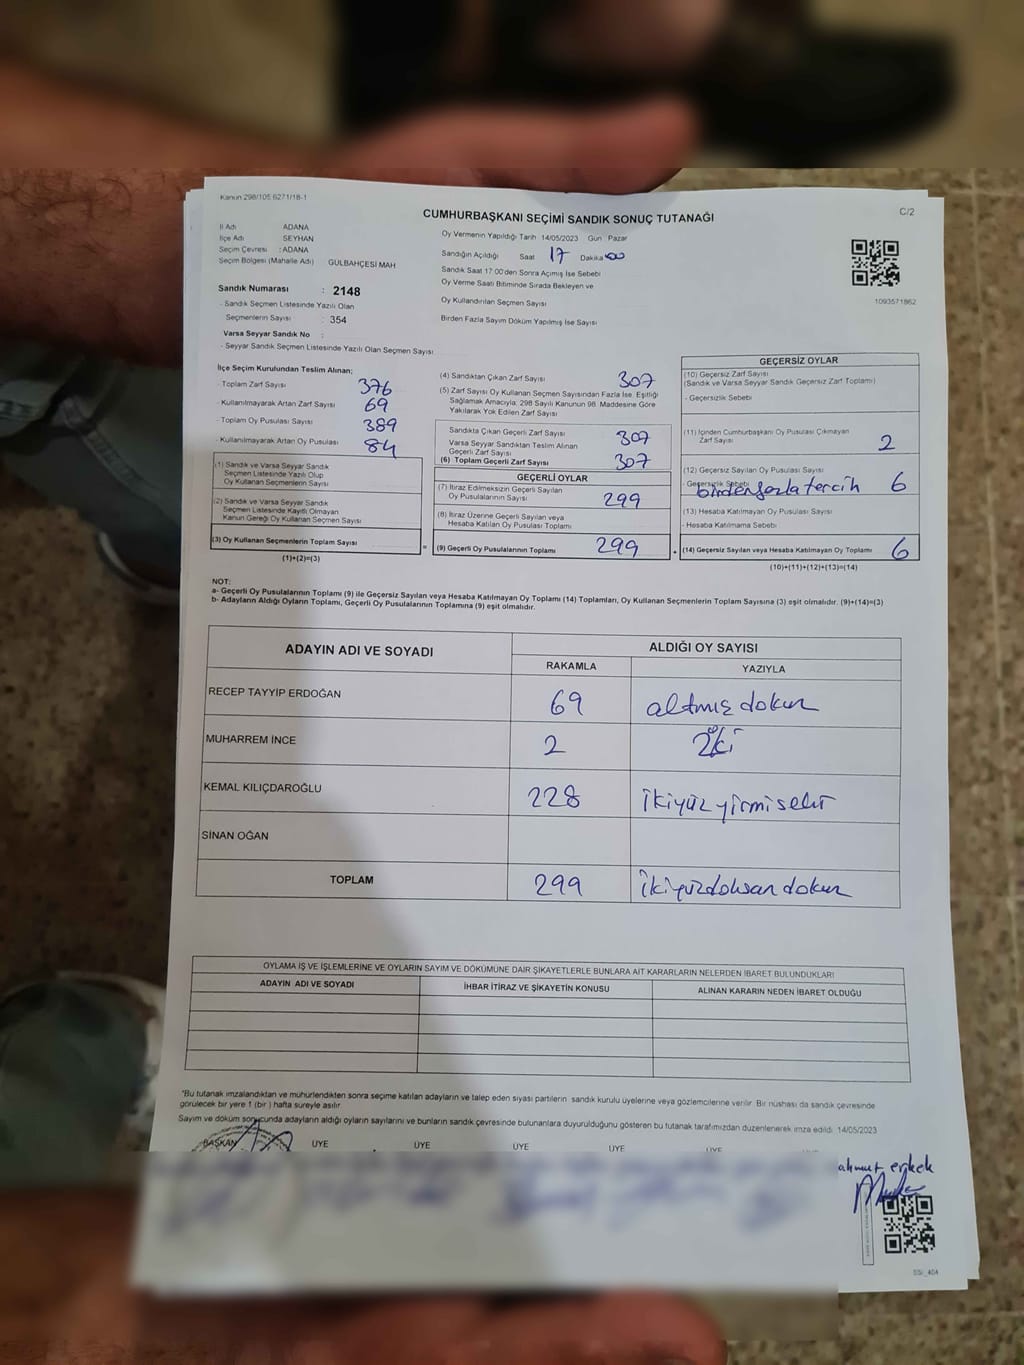 Kanun 298/105 6271/18-1
C/2
CUMHURBAŞKANI SEÇİMİ SANDIK SONUÇ TUTANAĞI
İl Adı ADANA
İlçe Adı SEYHAN
Seçim Çevresi : ADANA
Seçim Bölgesi (Mahalle Adı) GÜLBAHÇESİ MAH
Sandık Numarası : 2148
- Sandık Seçmen Listesinde Yazılı Olan
Seçmenlerin Sayısı : 354
Varsa Seyyar Sandık No :
- Seyyar Sandık Seçmen Listesinde Yazılı Olan Seçmen Sayısı
Oy Vermenin Yapıldığı Tarih 14/05/2023 Gün Pazar
Sandığın Açıldığı Saat 17 Dakika 00
Sandık Saat 17:00'den Sonra Açılmış İse Sebebi
Oy Verme Saati Bitiminde Sırada Bekleyen ve
Oy Kullandırılan Seçmen Sayısı
Birden Fazla Sayım Döküm Yapılmış İse Sayısı
1093571862
İlçe Seçim Kurulundan Teslim Alınan;
- Toplam Zarf Sayısı 376
- Kullanılmayarak Artan Zarf Sayısı 69
- Toplam Oy Pusulası Sayısı 389
- Kullanılmayarak Artan Oy Pusulası 84
(1) Sandık ve Varsa Seyyar Sandık
Seçmen Listesinde Yazılı Olup
Oy Kullanan Seçmenlerin Sayısı
(2) Sandık ve Varsa Seyyar Sandık
Seçmen Listesinde Kayıtlı Olmayan
Kanun Gereği Oy Kullanan Seçmen Sayısı
(3) Oy Kullanan Seçmenlerin Toplam Sayısı
(1)+(2)=(3)
(4) Sandıktan Çıkan Zarf Sayısı 307
(5) Zarf Sayısı Oy Kullanan Seçmen Sayısından Fazla İse, Eşitliği
Sağlamak Amacıyla; 298 Sayılı Kanunun 98. Maddesine Göre
Yakılarak Yok Edilen Zarf Sayısı
Sandıkta Çıkan Geçerli Zarf Sayısı 307
Varsa Seyyar Sandıktan Teslim Alınan
Geçerli Zarf Sayısı
(6) Toplam Geçerli Zarf Sayısı 307
GEÇERLİ OYLAR
(7) İtiraz Edilmeksizin Geçerli Sayılan
Oy Pusulalarının Sayısı 299
(8) İtiraz Üzerine Geçerli Sayılan veya
Hesaba Katılan Oy Pusulası Toplamı
= (9) Geçerli Oy Pusulalarının Toplamı 299
GEÇERSİZ OYLAR
(10) Geçersiz Zarf Sayısı
(Sandık ve Varsa Seyyar Sandık Geçersiz Zarf Toplamı)
- Geçersizlik Sebebi
(11) İçinden Cumhurbaşkanı Oy Pusulası Çıkmayan
Zarf Sayısı 2
(12) Geçersiz Sayılan Oy Pusulası Sayısı
- Geçersizlik Sebebi birden fazla tercih 6
(13) Hesaba Katılmayan Oy Pusulası Sayısı
- Hesaba Katılmama Sebebi
+ (14) Geçersiz Sayılan veya Hesaba Katılmayan Oy Toplamı 6
(10)+(11)+(12)+(13)=(14)
NOT:
a- Geçerli Oy Pusulalarının Toplamı (9) ile Geçersiz Sayılan veya Hesaba Katılmayan Oy Toplamı (14) Toplamları, Oy Kullanan Seçmenlerin Toplam Sayısına (3) eşit olmalıdır. (9)+(14)=(3)
b- Adayların Aldığı Oyların Toplamı, Geçerli Oy Pusulalarının Toplamına (9) eşit olmalıdır.
ADAYIN ADI VE SOYADI ALDIĞI OY SAYISI
RAKAMLA YAZIYLA
RECEP TAYYİP ERDOĞAN 69 altmış dokuz
MUHARREM İNCE 2 İki
KEMAL KILIÇDAROĞLU 228 İkiyüz yirmi sekiz
SİNAN OĞAN
TOPLAM 299 İkiyüzdoksan dokuz
OYLAMA İŞ VE İŞLEMLERİNE VE OYLARIN SAYIM VE DÖKÜMÜNE DAİR ŞİKAYETLERLE BUNLARA AİT KARARLARIN NELERDEN İBARET BULUNDUKLARI
ADAYIN ADI VE SOYADI İHBAR İTİRAZ VE ŞİKAYETİN KONUSU ALINAN KARARIN NEDEN İBARET OLDUĞU
"Bu tutanak imzalandıktan ve mühürlendikten sonra seçime katılan adayların ve talep eden siyasi partilerin sandık kurulu üyelerine veya gözlemcilerine verilir. Bir nüshası da sandık çevresinde
görülecek bir yere 1 (bir) hafta süreyle asılır
Sayım ve döküm sonucunda adayların aldığı oyların sayılarını ve bunların sandık çevresinde bulunanlara duyurulduğunu gösteren bu tutanak tarafımızdan düzenlenerek imza edildi. 14/05/2023
BAŞKAN ÜYE ÜYE ÜYE ÜYE ÜYE
ahmut erkek
SSİ_404